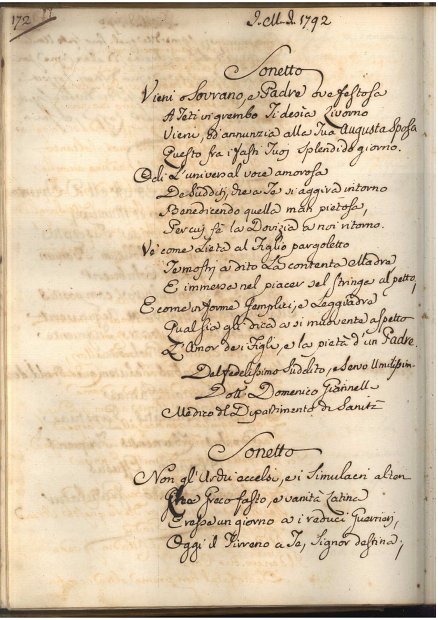 172
I. M. I. 1792
Sonetto
Vieni o Sovrano, e Padre ove festosa
A Teti in grembo Ti desia Livorno
Vieni, ed annunzia alla Tua Augusta Sposa
Questo fra i fasti Tuoj splendido giorno.
Odi L'universal voce amorosa
De Sudditi, che a Te s'aggira intorno
Benedicendo quella man pietosa,
Per cui fà la Dovizia a noi ritorno.
Ve' come Lieta al Figlio pargoletto
Te mostri a dito La contenta Madre
E immersa nel piacer sel stringe al petto,
E come in forme semplici, e Leggiadre
Qual sia gli dica a si muovente aspetto
L'Amor dei Figli, e la pietà d'un Padre.
Del fedelissimo Suddito, e Servo Umilissim.
Dott. Domenico Giannelli
Medico del Dipartimento di Sanità
Sonetto
Non gl'Archi eccelsi, e i Simulacri alteri
Che Greco fasto, e vanità Latina
Eresse un giorno a i reduci Guerrieri,
Oggi il Tirreno a Te, Signor destina;